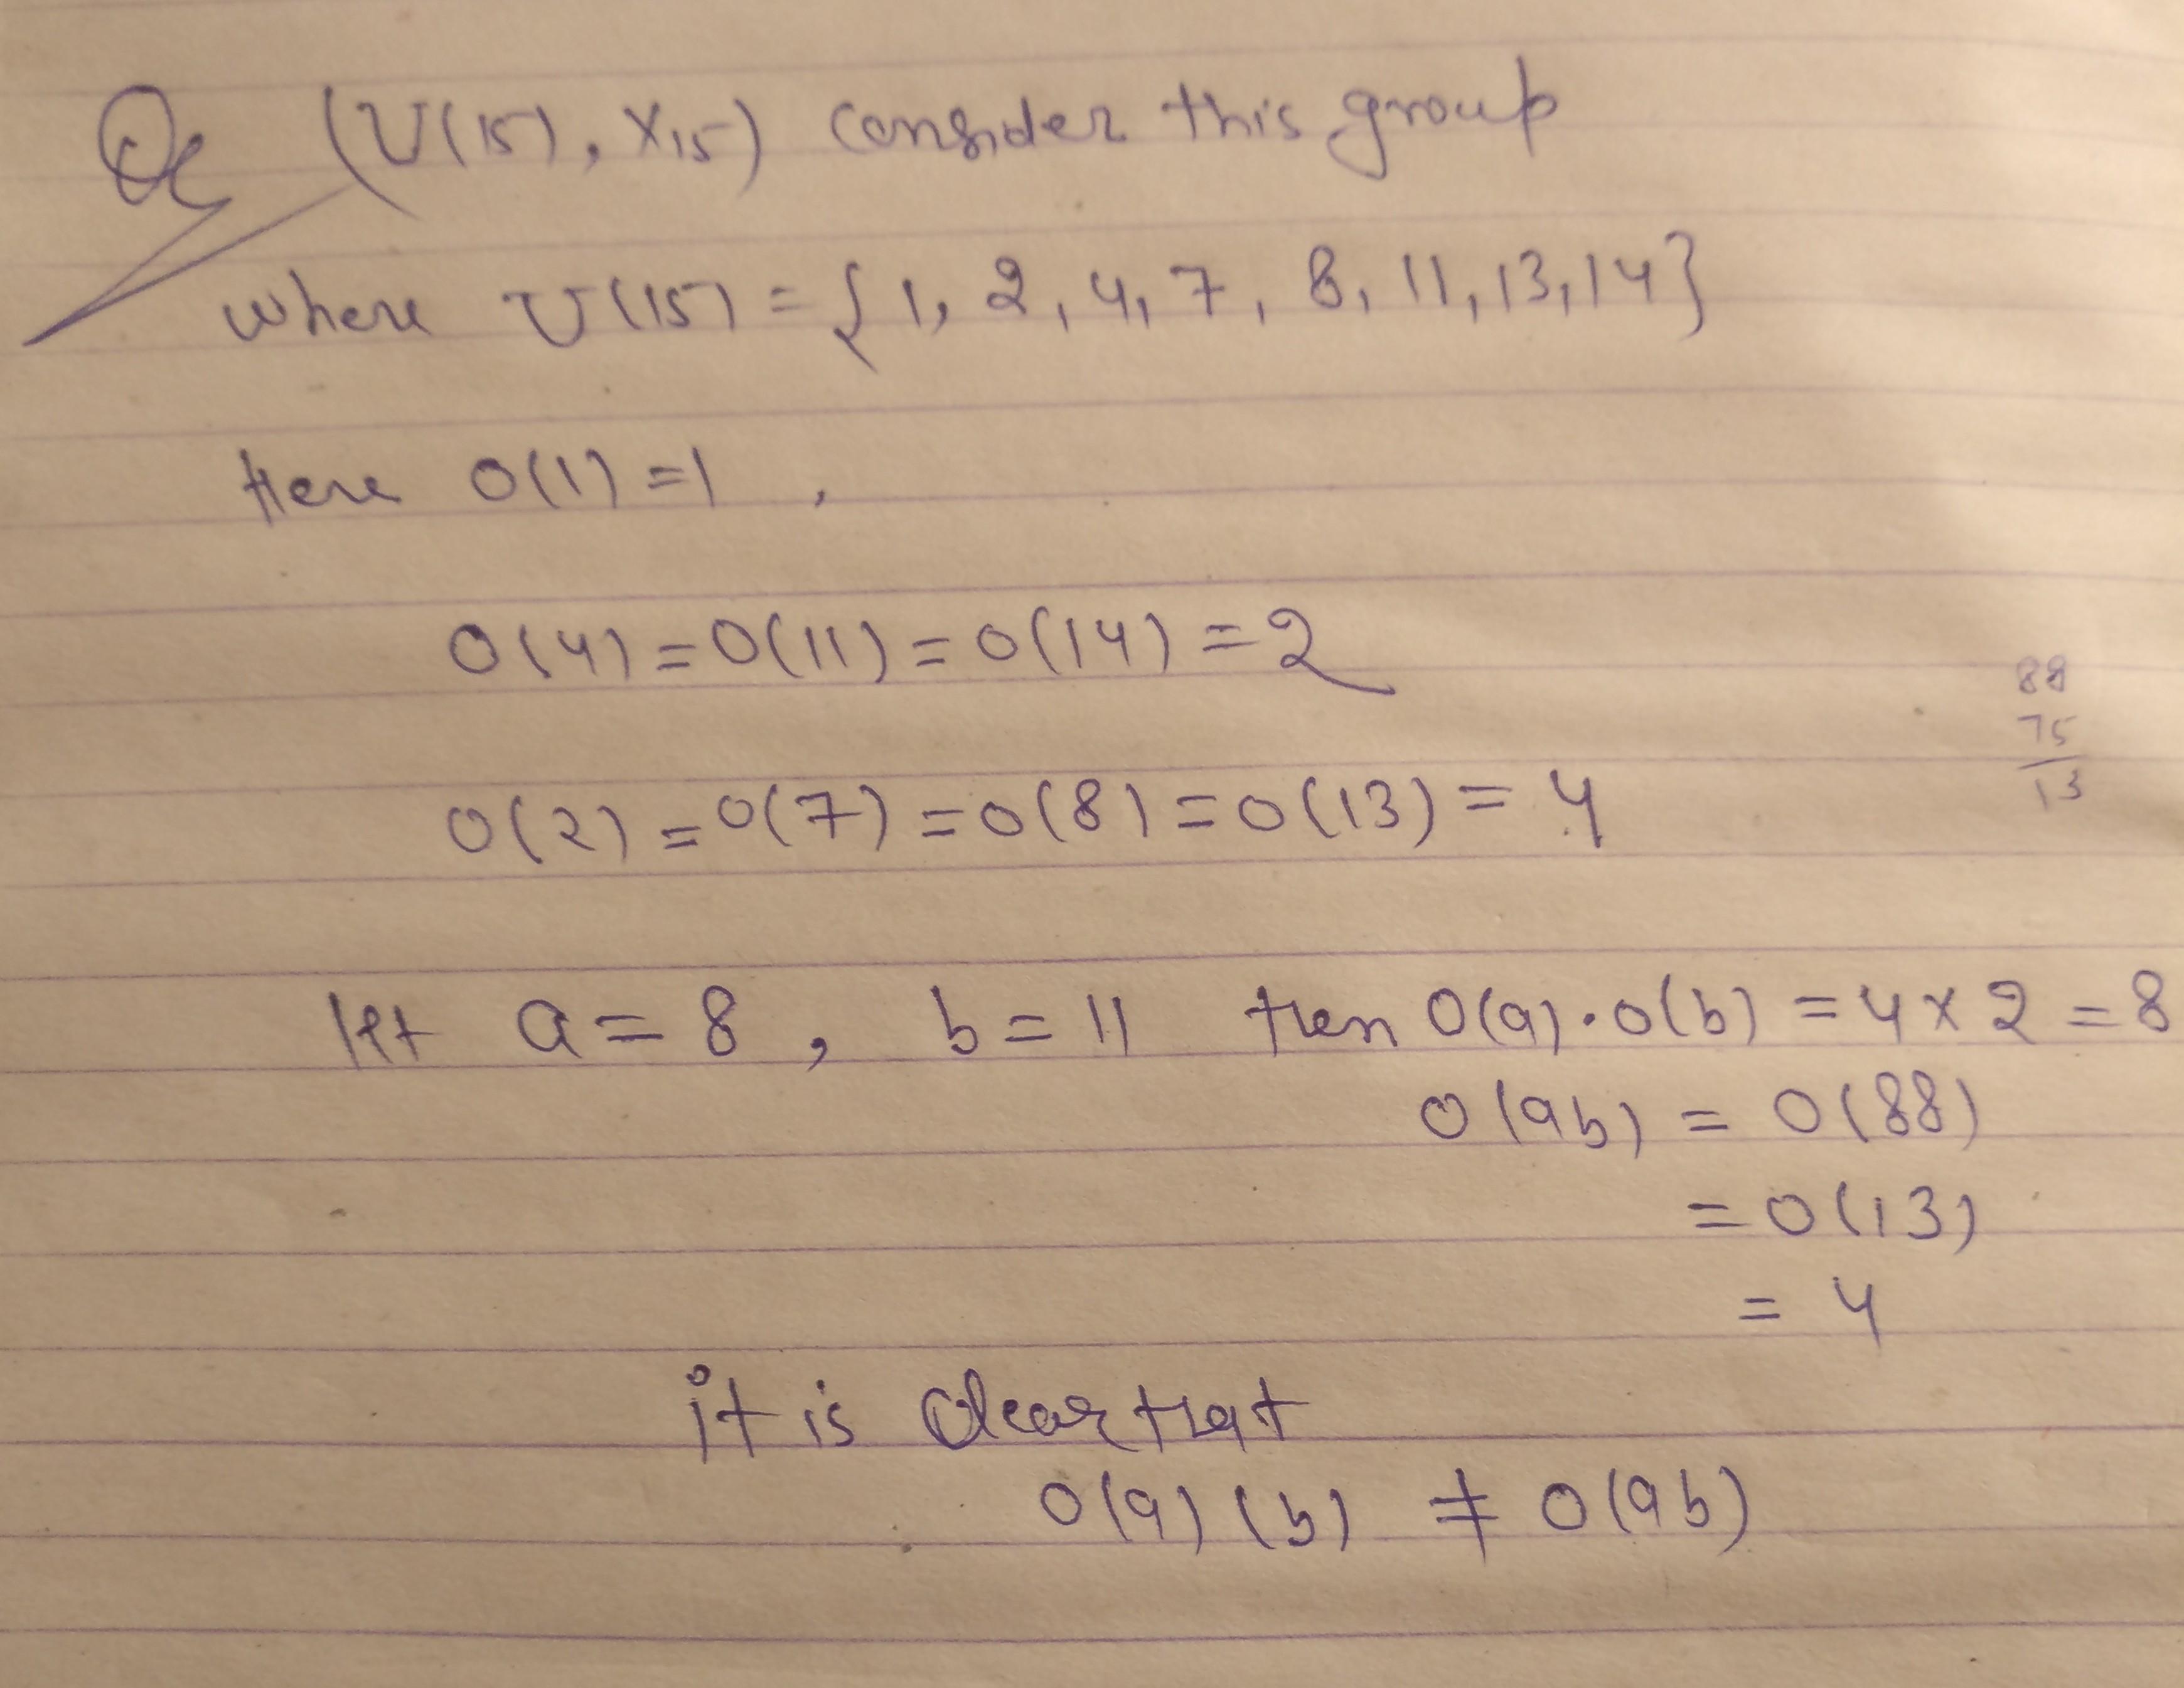 Q (U(15), X15) consider this group
where U(15) = {1, 2, 4, 7, 8, 11, 13, 14}
Here O(1) = 1 ,
O(4) = O(11) = O(14) = 2
88
75
13
O(2) = O(7) = O(8) = O(13) = 4
let a = 8 , b = 11 then O(a)·O(b) = 4 x 2 = 8
O(ab) = O(88)
= O(13)
= 4
it is clear that
O(a) (b) ≠ O(ab)